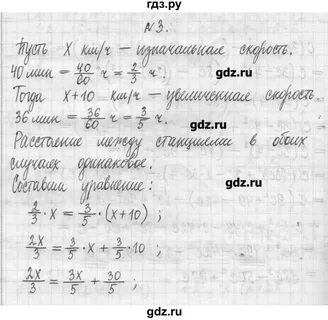 №3.
Пусть x км/ч – изначальная скорость.
40 мин = 40/60 ч = 2/3 ч.
Тогда x+10 км/ч – увеличенная скорость.
36 мин = 36/60 ч = 3/5 ч.
Расстояние между станциями в обоих
случаях одинаковое.
Составим уравнение:
2/3 · x = 3/5 · (x+10) ;
2x/3 = 3/5 · x + 3/5 · 10 ;
2x/3 = 3x/5 + 30/5 ;
gdz.ru
gdz.ru
gdz.ru
gdz.ru
gdz.ru
gdz.ru
gdz.ru